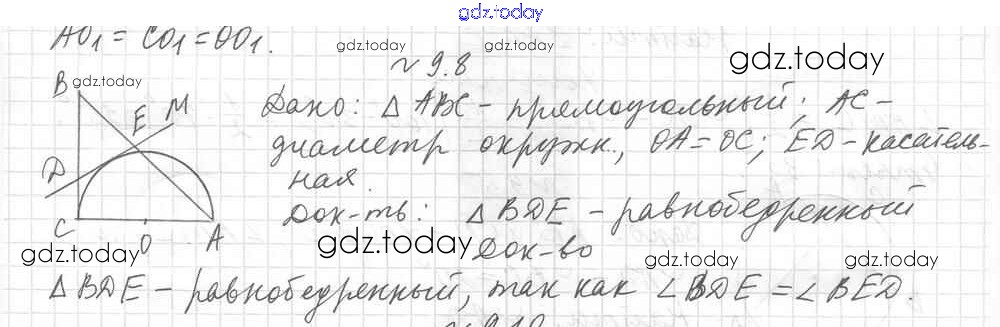 gdz.today
AO₁ = CO₁ = OO₁.
gdz.today gdz.today
~ 9.8 gdz.today
B gdz.today
E M Дано: △ ABC - прямоугольный; AC -
диаметр окружн., OA = OC; ED - касатель-
D ная.
Док-ть: △ BDE - равнобедренный
C O A
gdz.today gdz.today Док-во gdz.today gdz.today
△ BDE - равнобедренный, так как ∠ BDE = ∠ BED.